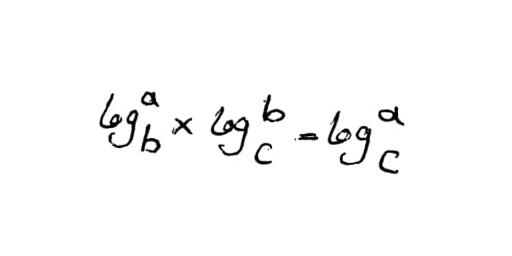 log_b^a × log_c^b = log_c^a